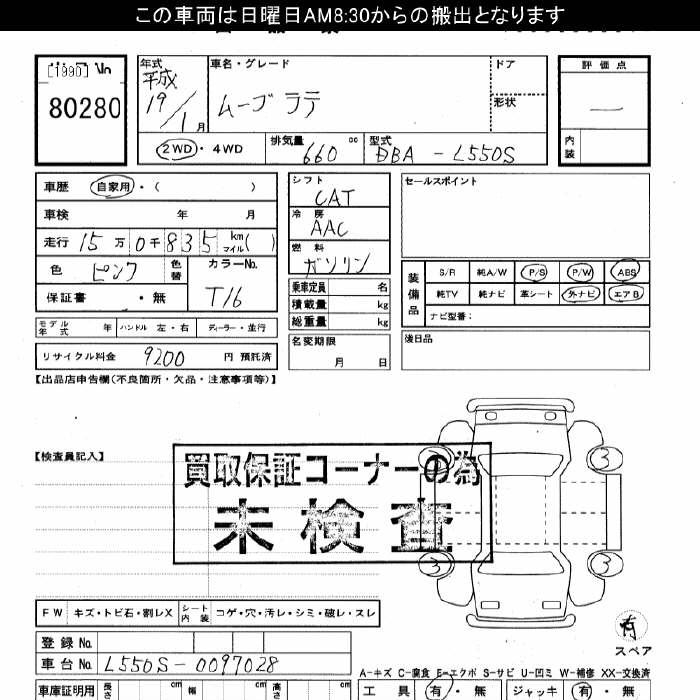 この車両は日曜日AM8:30からの搬出となります
[1990]
80280
年式
平成
19/1月
車名・グレード
ムーヴ ラテ
ドア
形状
評価点
―
内装
2WD・4WD
排気量
660 cc
型式
DBA - L550S
車歴 自家用・( )
車検 年 月
走行 15万0千835 km マイル( )
色 ピンク 色替
カラーNo.
T16
保証書 ・無
モデル年式 年 ハンドル 左・右 ディーラー・並行
リサイクル料金 9200 円 預託済
シフト
CAT
冷房
AAC
燃料
ガソリン
乗車定員 名
積載量 kg
総重量 kg
名変期限
月 日
セールスポイント
装備品
S/R 純A/W P/S P/W ABS
純TV 純ナビ 革シート 外ナビ エアB
ナビ型番:
後日品
【出品店申告欄(不良箇所・欠品・注意事項等)】
【検査員記入】
買取保証コーナーの為
未検査
3 3
3 3
有
スペア
FW キズ・トビ石・割レX シート内装 コゲ・穴・汚レ・シミ・破レ・スレ
登録No.
車台No. L550S-0097028
A-キズ C-腐食 E-エクボ S-サビ U-凹ミ W-補修 XX-交換済
車庫証明用 長さ cm 幅 cm 高さ cm
工具 有・無 ジャッキ 有・無